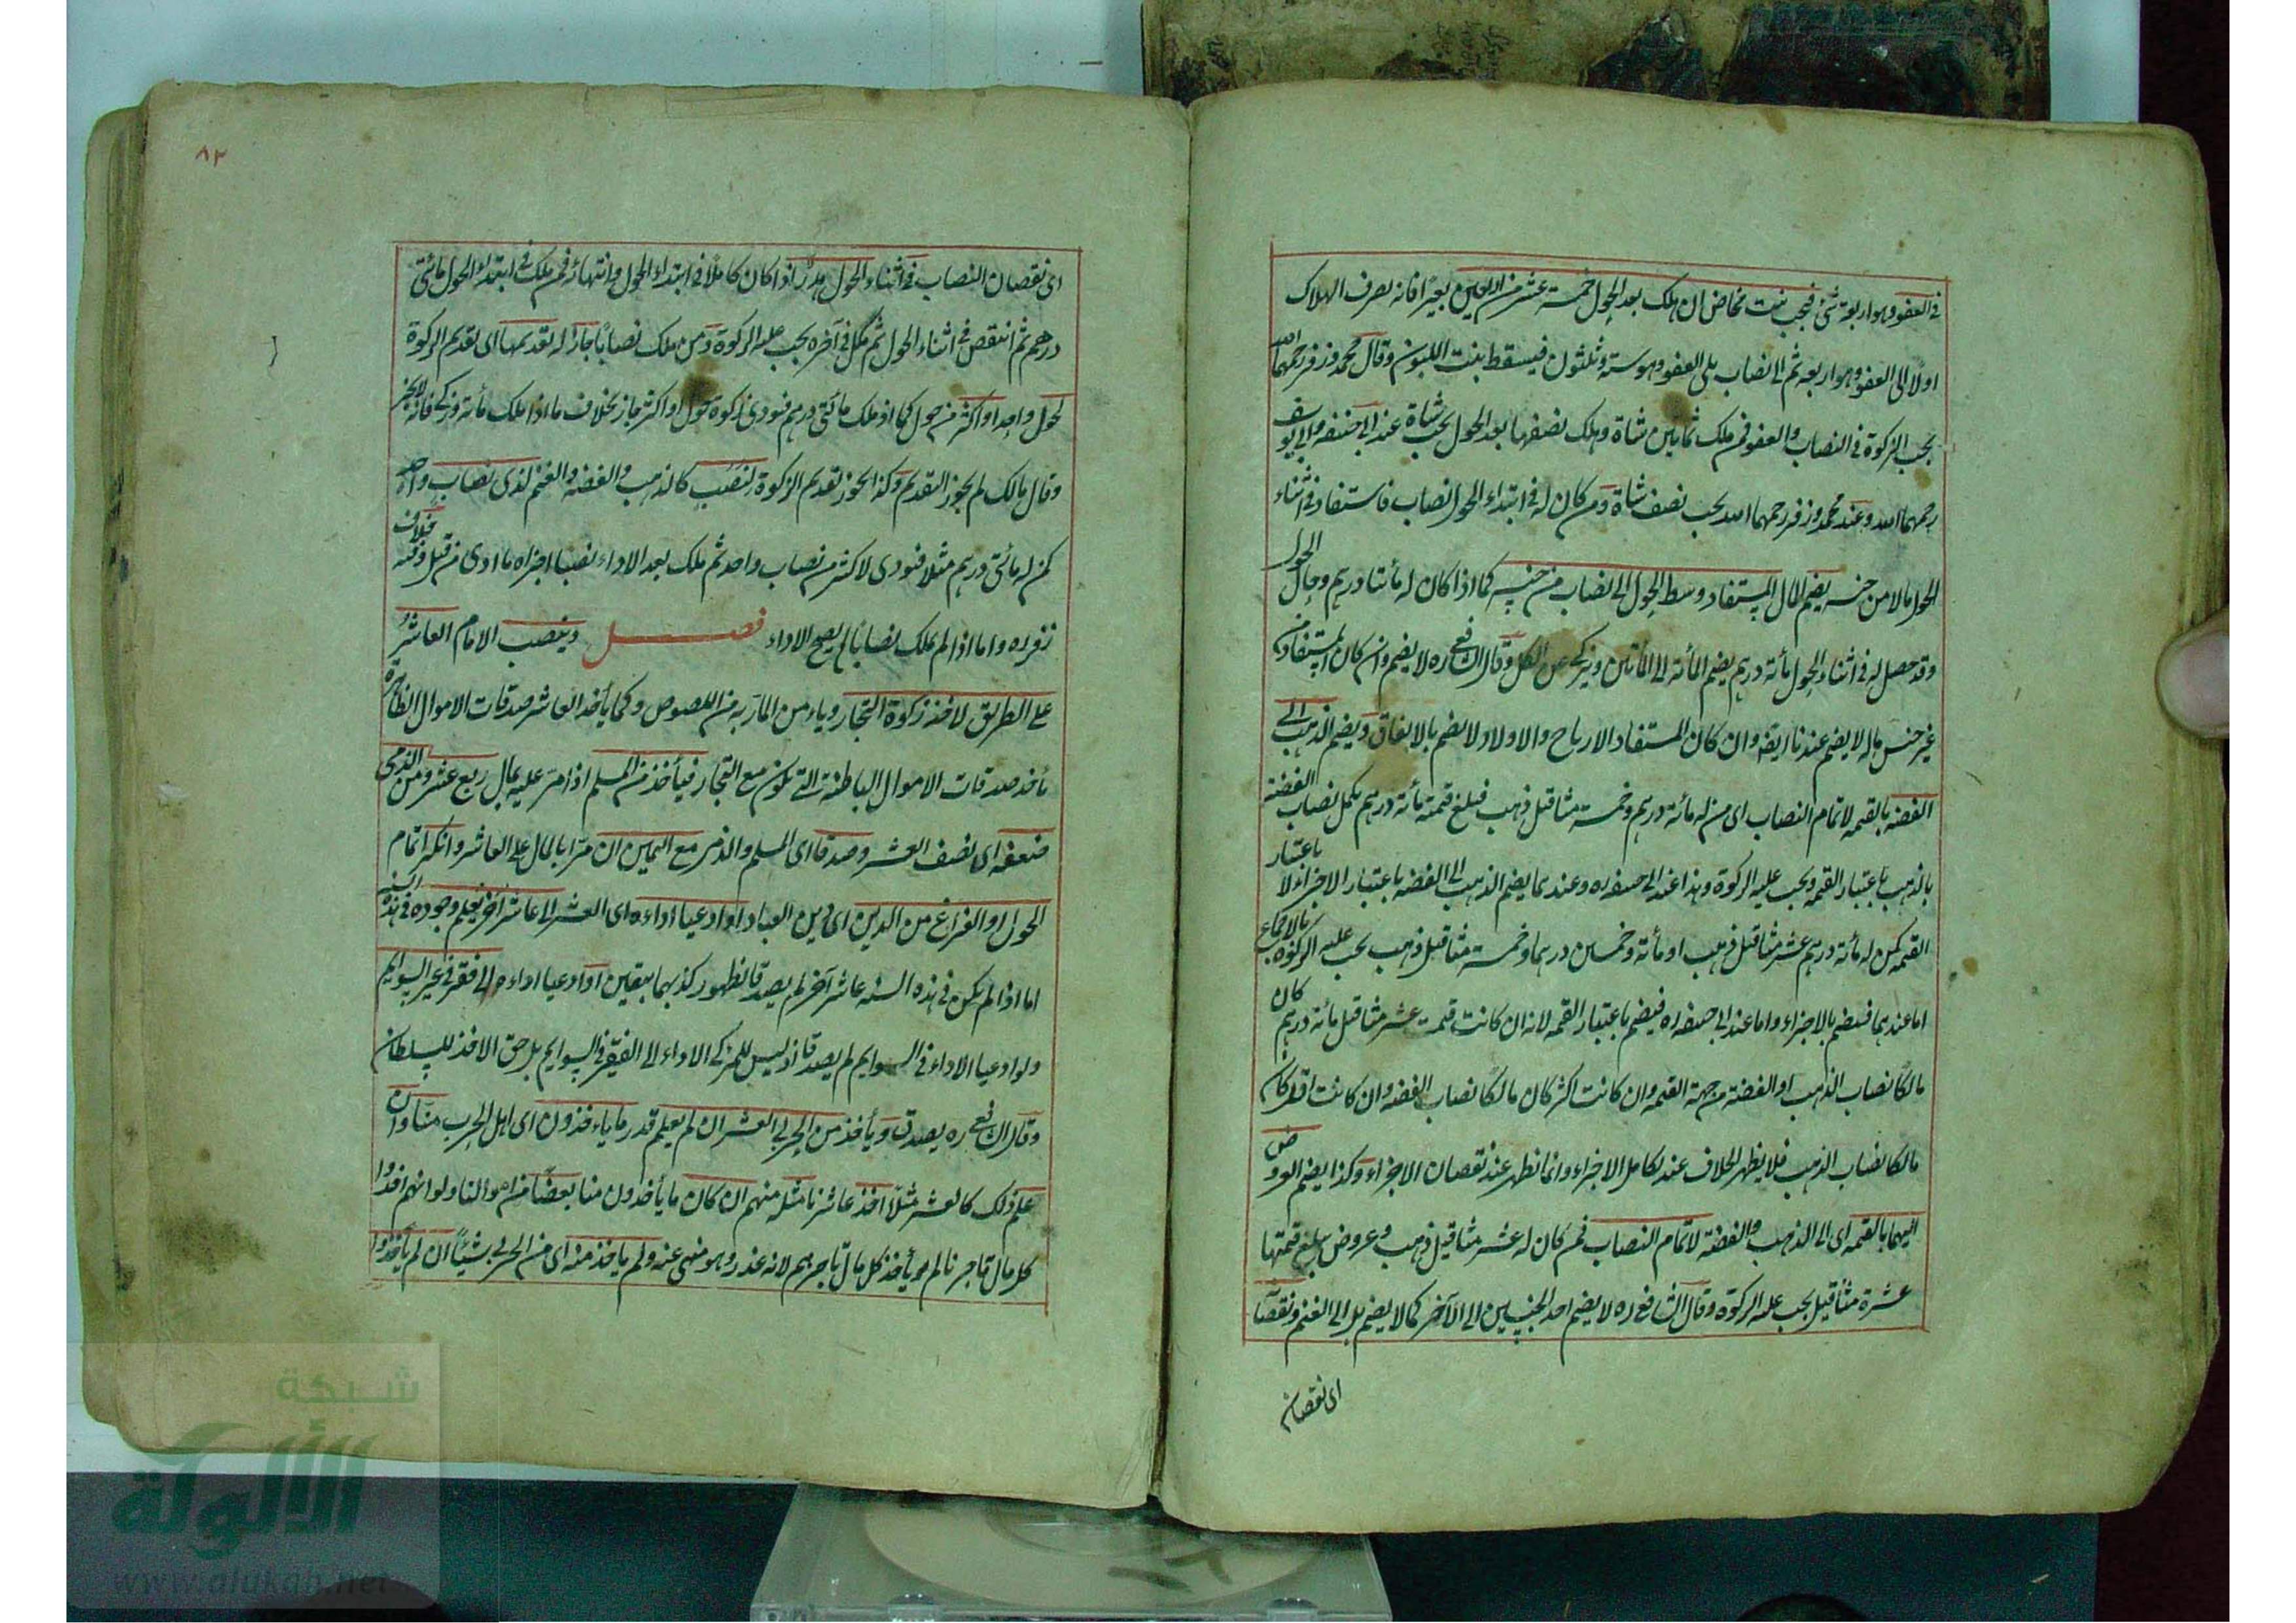 في العفو وهو اربعة شئ فيجب بنت مخاض ان هلك بعد الحول خمسة عشر من اربعين بعيرا فانه يصرف الهلاك
اولا الى العفو وهو اربعة ثم الى نصاب يلى العفو وهو ستة وثلثون فيسقط بنت اللبون وقال محمد وزفر رحمهما الله
يجب الزكوة في النصاب والعفو فمن ملك ثمانين شاة وهلك نصفها بعد الحول يجب شاة عند ابى حنيفه وابى يوسف
رحمهما الله وعند محمد وزفر رحمهما الله يجب نصف شاة ومن كان له في ابتداء الحول نصاب فاستفاد في اثناء
الحول مالا من جنسه يضم المال المستفاد وسط الحول الى نصاب من جنسه كما اذا كان له مأتا درهم وحال الحول
وقد حصل له في اثناء الحول مأة درهم يضم المأة الى المأتين ويزكى عن الكل وقال الشافعي ره لا يضم وان كان المستفاد من
غير جنس ماله لا يضم عندنا ايضا وان كان المستفاد الارباح والاولاد لا يضم بالاتفاق ويضم الذهب الى
الفضة بالقيمه لاتمام النصاب اى من له مأة درهم وخمسة مثاقيل ذهب فبلغ قيمته مأة درهم يكمل نصاب الفضة
بالذهب باعتبار القيمه ويجب عليه الزكوة وهذا عند ابى حنيفه ره وعندهما يضم الذهب الى الفضه باعتبار الاجزاء لا باعتبار
القيمه كمن له مأة درهم عشر مثاقيل ذهب او مأة وخمسين درهما وخمسة مثاقيل ذهب يجب عليه الزكوة بالاجماع
اما عندهما فيضم بالاجزاء واما عند ابى حنيفه ره فيضم باعتبار القيمه لانه ان كانت قيمة عشر مثاقيل مأة درهم كان
مالكا نصاب الذهب او الفضة من جهة القيمه وان كانت اكثر كان مالكا نصاب الفضه وان كانت اقل كان
مالكا نصاب الذهب فلا يظهر الخلاف عند تكامل الاجزاء وانما يظهر عند نقصان الاجزاء وكذا يضم العروض
اليهما بالقيمه اى الى الذهب والفضة لاتمام النصاب فمن كان له عشر مثاقيل ذهب وعروض يبلغ قيمتها
عشرة مثاقيل يجب عليه الزكوة وقال الشافعى ره لا يضم احد الجنسين الى الآخر كما لا يضم الى الغنم ونقصان
اى نقصان
٨٢
اى نقصان النصاب في اثناء الحول هدر اذا كان كاملا في ابتداء الحول وانتهائه فمن ملك في ابتداء الحول مائتى
درهم ثم انتقص في اثناء الحول ثم كمل في آخره يجب عليه الزكوة ومن ملك نصابا جاز له تقديمها اى تقديم الزكوة
لحول واحد او اكثر من حول كما اذ ملك مائتى درهم فنودى زكوة حول او اكثر جاز بخلاف ما اذا ملك مأة وزكى فانه لا يجوز
وقال مالك لم يجوز التقديم وكذا يجوز تقديم الزكوة لنصب كالذهب والفضه والغنم لذى نصاب واحد
كمن له مائتى درهم مثلا فنودى لاكثر من نصاب واحد ثم ملك بعد الاداء نصبا اجزاه ما ادى من قبل وفيه خلاف
زفر ره واما اذا لم يملك نصابا لم يصح الاداء فصل وينصب الامام العاشر
على الطريق لاخذ زكوة التجار وياءمن المار به من اللصوص وكما يأخذ العاشر صدقات الاموال الظاهرة
يأخذ صدقات الاموال الباطنة التى تكون مع التجار فيأخذ من المسلم اذا مر عليه بمال ربع عشر ومن الذمى
ضعفه اى نصف العشر وصدقا اى المسلم والذمى مع اليمين ان مرا بالمال على العاشر وانكرا تمام
الحول او الفراغ من الدين اى دين العباد او ادعيا اداءه اى العشر الى عاشر آخر يعلم وجوده في هذه السنه
اما اذا لم يكن في هذه السنه عاشر آخر لم يصدقا لظهور كذبهما بيقين او ادعيا اداءه الى فقر في غير السوايم
ولو ادعيا الاداء في السوايم لم يصدقا اذ ليس للمزكى الاداء الى الفقير في السوايم بل حق الاخذ للسلطان
وقال الشافعى ره يصدق ويأخذ من الحربى العشر ان لم يعلم قدر ما ياءخذون اى اهل الحرب منا وان
علم ذلك كالعشر مثلا اخذ عاشرنا مثله منهم ان كان ما يأخذون منا بعضا من اموالنا ولو انهم اخذوا
كل مال تاجرنا لم يأخذ كل مال تاجرهم لانه غدر وهو منهى عنه ولم ياخذ منه اى من الحربى شيئا ان لم يأخذوا
شبكة
الألوكة
www.alukah.net